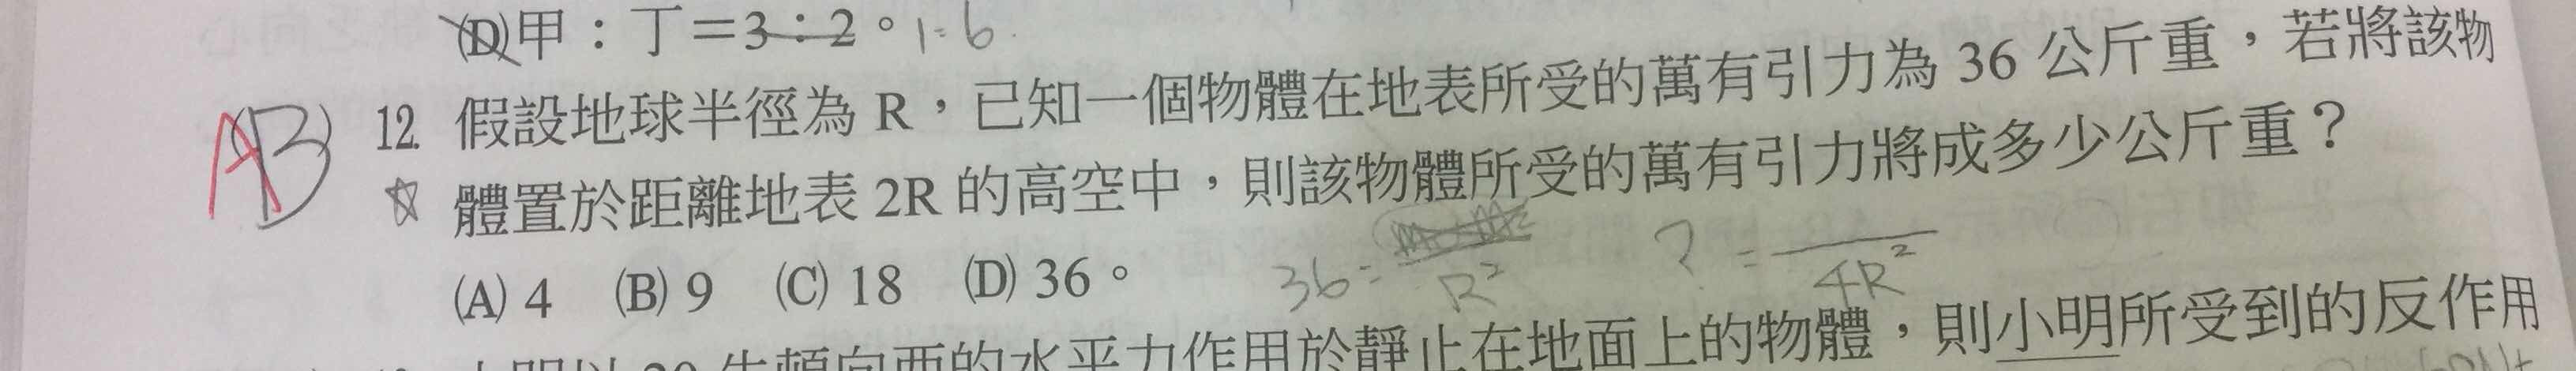 (D)甲：丁＝3：2。1:6
AB 12. 假設地球半徑為 R，已知一個物體在地表所受的萬有引力為 36 公斤重，若將該物
☆ 體置於距離地表 2R 的高空中，則該物體所受的萬有引力將成多少公斤重？
(A) 4 (B) 9 (C) 18 (D) 36。
36= R² ?= 4R²
20 牛頓向西的水平力作用於靜止在地面上的物體，則小明所受到的反作用